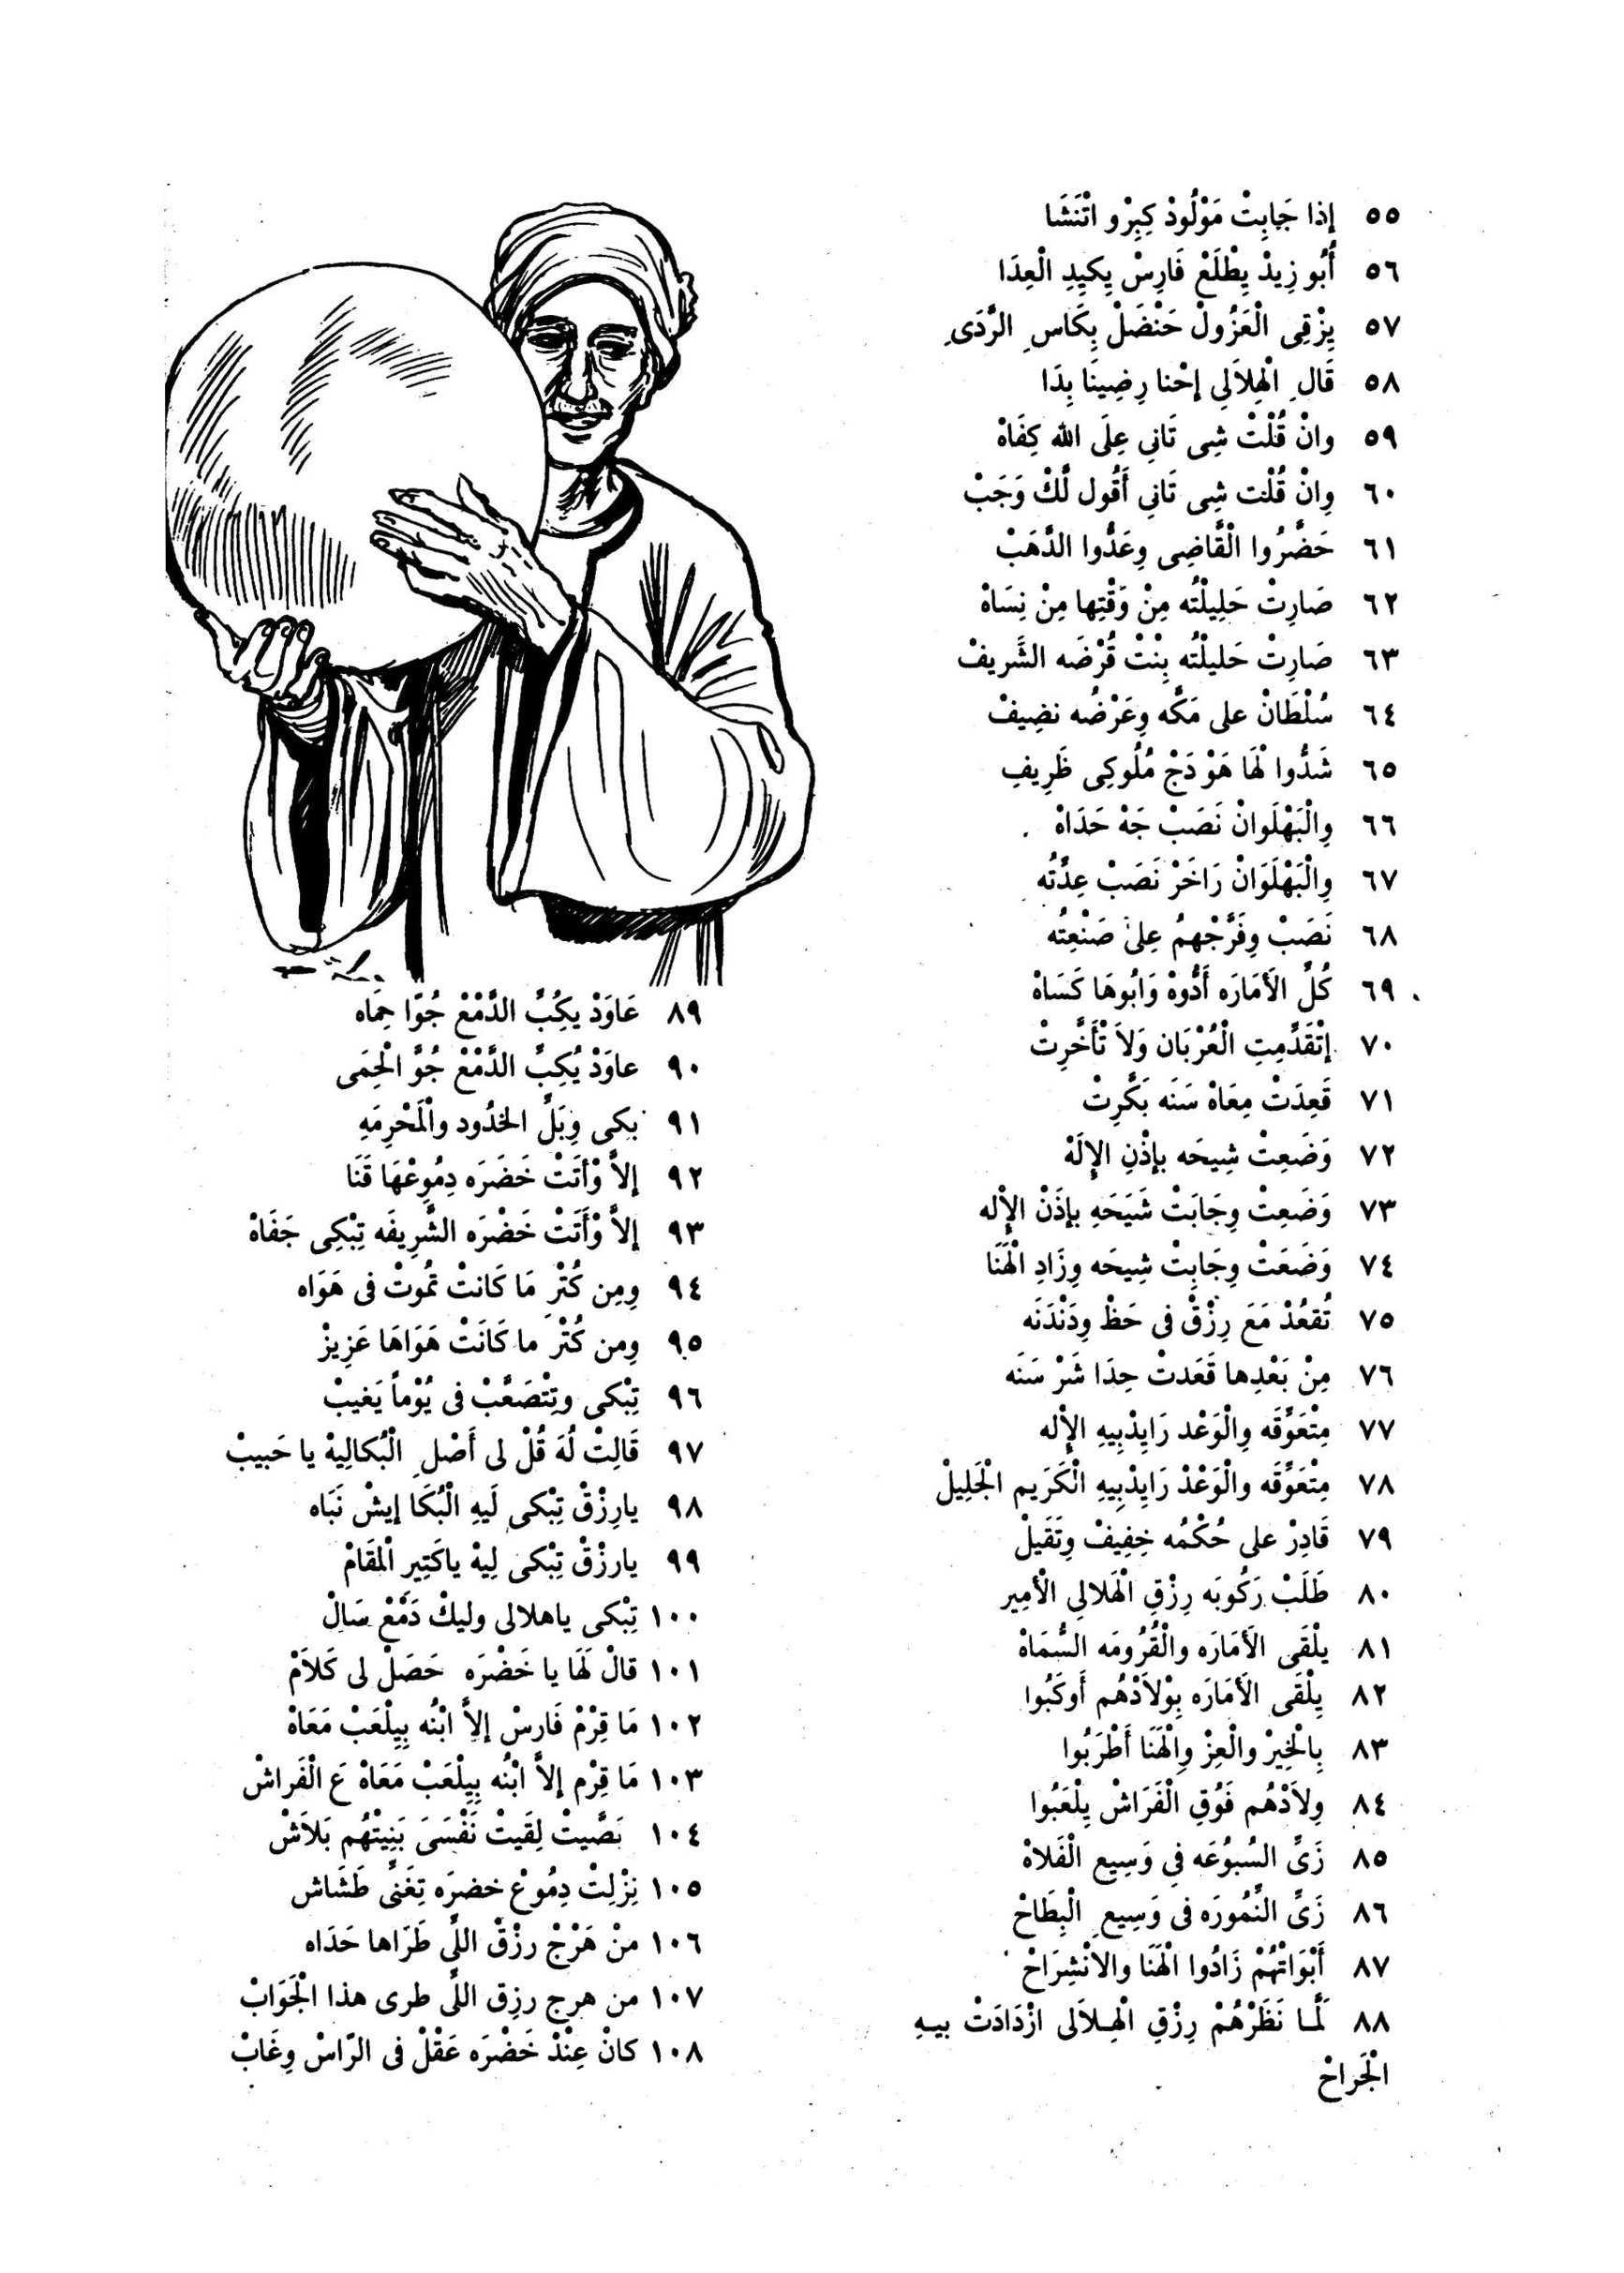 ٥٥ إِذا جَابِتْ مَوْلُودْ كِبِرْو اتْنَشَا
٥٦ أَبُو زِيدْ يِطْلَعْ فَارِسْ يِكيِدِ الْعِدَا
٥٧ يِزْقِى الْعَزُولْ حَنْضَلْ بِكَاسِ الرَّدَىِ
٥٨ قَالِ الْهِلاَلِى إِحْنا رِضِينَا بِدَا
٥٩ وانْ قُلْتْ شِى تَانِى عِلَى الله كِفَاهْ
٦٠ وِانْ قُلْت شِى تَانِى أَقُول لَّكْ وَجَبْ
٦١ حَضَّرُوا الْقَّاضِى وِعَدُّوا الدَّهَبْ
٦٢ صَارِتْ حَلِيلْتُه مِنْ وَقْتِها مِنْ نِسَاهْ
٦٣ صَارِتْ حَليلْتُه بِنْتْ قُرْضَه الشَّريفْ
٦٤ سُلْطَانْ على مَكَّه وِعَرْضُه نضِيفْ
٦٥ شَدُّوا لْهَا هَوْ دَجْ مُلُوكِى ظَرِيفِ
٦٦ وِالْبَهْلَوانْ نَصَبْ جَهْ حَدَاهْ
٦٧ وِالْبَهْلَوَانْ رَاخَرْ نَصَبْ عِدَّتُه
٦٨ نَصَبْ وِفَرَّجْهمُ عِلىْ صَنْعِتُه
٦٩ كُلِّ الأَمَارَه أَدُّوهْ وَابُوهَا كَسَاهْ
٧٠ إِتْقَدَّمِتِ الْعُرْبَان وَلاَ تْأَخَّرِتْ
٧١ قَعِدَتْ مِعَاهْ سَنَه بَكَّرِتْ
٧٢ وَضَعِتْ شِيحَه بإِذْنِ الإِلَهْ
٧٣ وَضَعِتْ وِجَابَتْ شَيَحَهِ بإِذَنْ الإِلْه
٧٤ وَضَعَتْ وِجَابِتْ شِيَحَه وِزَادِ الْهَنَا
٧٥ تُقعُدْ مَعَ رِزْقْ فى حَظْ وِدَنْدَنَه
٧٦ مِنْ بَعْدِها قَعَدتْ حِدَا شَرْ سَنَه
٧٧ مِتْعَوَّقَه وِالْوَعْد رَايِدْبِيهِ الإِلْه
٧٨ مِتْعَوَّقَه والْوَعْدْ رَايِدْبِيهِ الْكَرَيم الْجَلِيلْ
٧٩ قَادِرْ على حُكْمُه خِفِيفْ وِتَقَيلْ
٨٠ طَلَبْ رَكُوبَه رِزْقِ الْهَلالِى الْأمِير
٨١ يلْقَى الأَمَارَه والْقُرُومَه السُّمَاهْ
٨٢ يِلْقَى الأَمَارَه بِوْلاَدْهُم أَوكَبُوا
٨٣ بِالْخِيْر والْعِزْ وِالْهَنَا أَطْرَبُوا
٨٤ وِلاَدْهُم فَوُقِ الْفَرَاشْ يِلْعَبُوا
٨٥ زَىِّ السُبوُعَه فى وَسِيعِ الْفَلاهْ
٨٦ زَىِّ النَّمُورَه فى وَسِيعِ الْبِطَاحْ
٨٧ أَبْوَاتْهُمْ زَادُوا الْهَنَا والانْشِرَاحْ
٨٨ لَمَّا نَظَرْهُمْ رِزْقِ الْهِلاَلى ازْدَادَتْ بيهِ
الْجَراحْ
٨٩ عَاوَدْ يكِبِّ الدَّمْعْ جُوّا حِمَاه
٩٠ عاوَدْ يُكِبِّ الدَّمْعْ جُوَّ الْحِمَى
٩١ بَكى وِبَلِّ الخدُود والْمَحْرِمَهِ
٩٢ إلاَّ وْأَتَتْ خَضَرَه دِمُوِعْهَا قَنَا
٩٣ إلاَّ وْأَتَتْ خَضْرَه الشَّرِيفَه تِبْكِى جَفَاهْ
٩٤ وِمِن كُتْرَ مَا كَانتْ تمُوتْ فى هَوَاه
٩٥ وِمن كُتْرَ ما كَانَتْ هَوَاهَا عَزِيزْ
٩٦ تِبْكى وِتِتْصَعَّبْ فى يُوْماً يَغيبْ
٩٧ قَالِتْ لُهَ قُلْ لى أَصْلِ الْبُكالِيهْ يا حَبيبْ
٩٨ يارِزْقْ تِبْكى لَيهِ الْبُكَا إيشْ نَبَاه
٩٩ يارزْقْ تِبْكى لِيهْ ياكَتِير الْمقَامْ
١٠٠ تِبْكى ياهلالى وليكْ دَمْعْ سَالْ
١٠١ قالْ لَهَا يا خَضْرَه حَصَلْ لى كَلاَمْ
١٠٢ مَا قِرْمْ فَارِسْ إلاَّ ابْنُه بِيِلْعَبْ مَعَاهْ
١٠٣ مَا قِرْم إلاَّ ابْنُه بِيِلْعَبْ مَعَاهْ عَ الْفَراشْ
١٠٤ بَصَّيتْ لِقَيتْ نَفْسَىَ بَنِيتْهُم بَلاَشْ
١٠٥ نِزْلِتْ دِمُوعْ خضرَه تِغَنِّى طَشَاش
١٠٦ منْ هَرْجْ رزْقْ اللِّى طَرَاها حَدَاه
١٠٧ من هرج رزِق اللِّى طرى هذا الْجَوَابْ
١٠٨ كانْ عِنْدْ خَضْرَه عَقْلْ فى الرّاسْ وِغَابْ